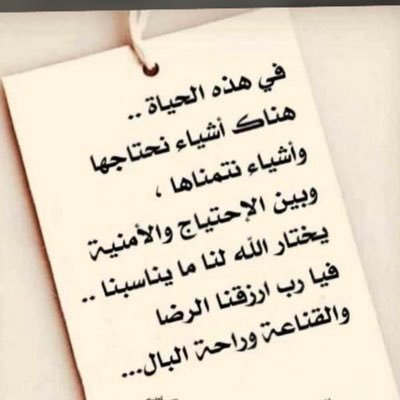 في هذه الحياة ..
هناك أشياء نحتاجها
وأشياء نتمناها ،
وبين الإحتياج والأمنية
يختار الله لنا ما يناسبنا ..
فيا رب ارزقنا الرضا
والقناعة وراحة البال...